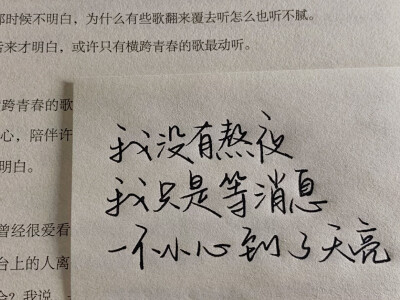 那时候不明白，为什么有些歌翻来覆去听怎么也听不腻。
来才明白，或许只有横跨青春的歌最动听。
跨青春的歌
心，陪伴许
明白。
我没有熬夜
我只是等消息
一不小心到了天亮
曾经很爱看
台上的人离
会？我说，